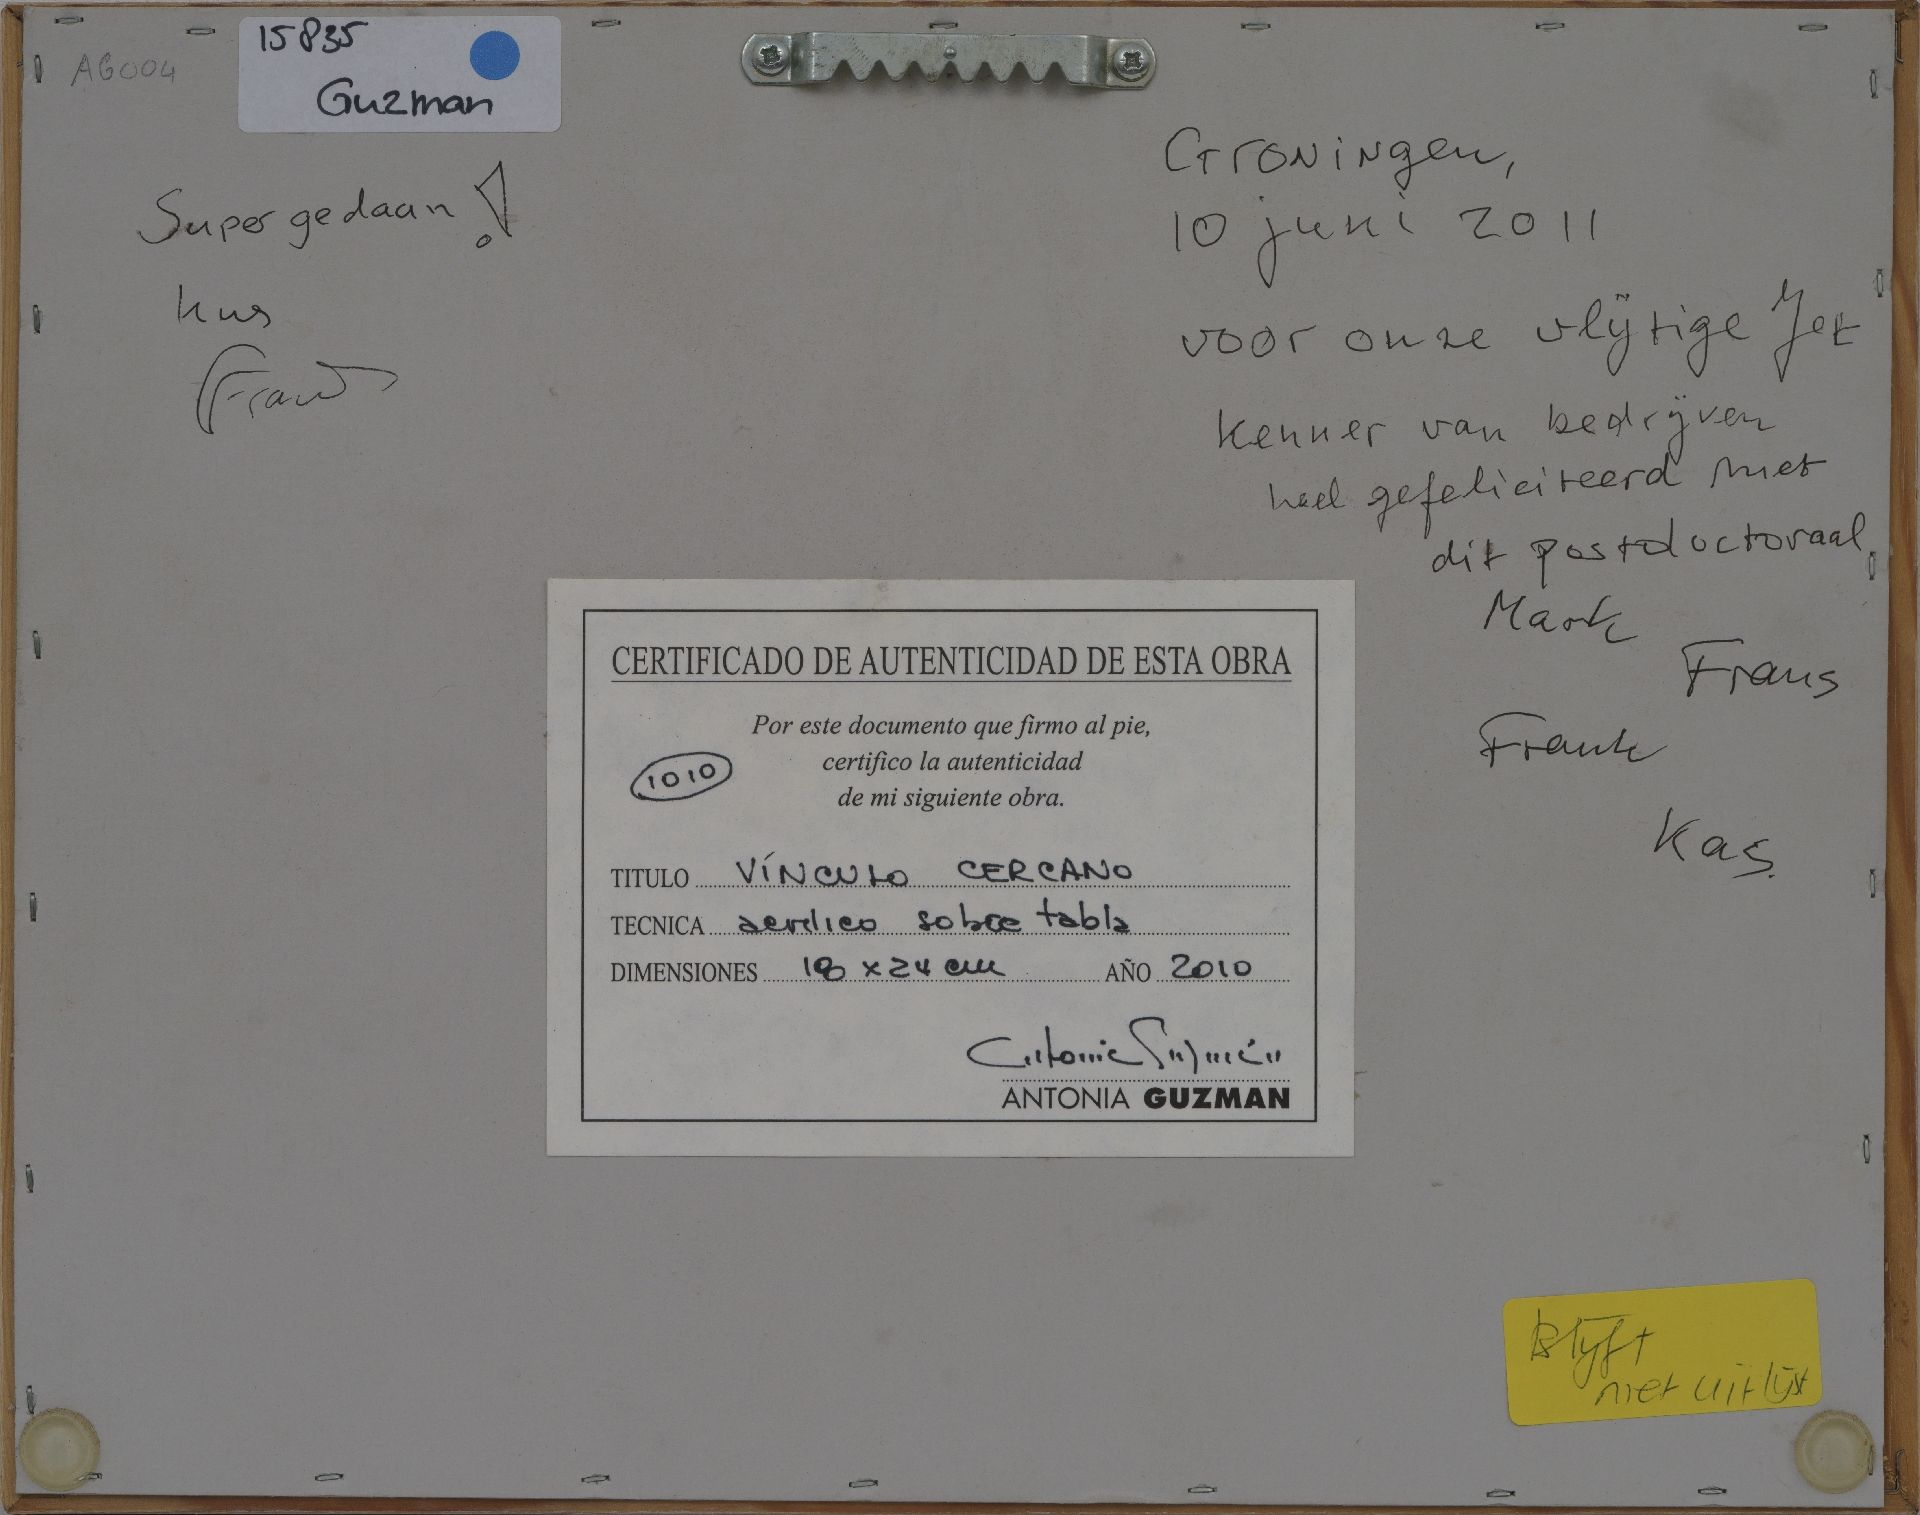 AG004
15835
Guzman
Super gedaan!
kus
Groningen,
10 juni 2011
voor onze vlijtige Jet
kenner van bedrijven
heel gefeliciteerd met
dit postdoctoraal,
Mark
Frans
Frank
Kas
CERTIFICADO DE AUTENTICIDAD DE ESTA OBRA
Por este documento que firmo al pie,
certifico la autenticidad
de mi siguiente obra.
1010
TITULO VÍNCULO CERCANO
TECNICA acrílico sobre tabla
DIMENSIONES 18 x 24 cm AÑO 2010
Antonia Guzmán
ANTONIA GUZMAN
Blijft
met uit lijst